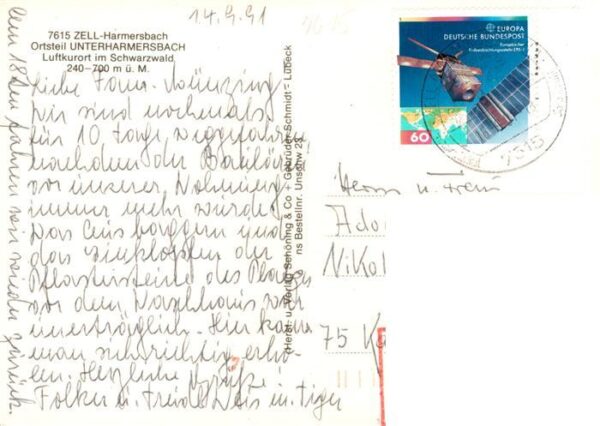 14.9.91
7615 ZELL-Harmersbach
Ortsteil UNTERHARMERSBACH
Luftkurort im Schwarzwald
240-700 m ü. M.
Liebe Fam.
wir sind nochmals
für 10 Tage weggefahren
nachdem der Baulärm
vor unserer Wohnung
immer mehr wurde.
Das Ausbaggern und
das Einklopfen der
Pflastersteine des Platzes
vor dem Nachhaus war
unerträglich. Hier kann
man sich richtig erho-
len. Herzliche Grüße
Folker u. Friedel Weis m. Tiger
Am 18ten fahren wir wieder zurück.
Herst. u. Verlag Schöning & Co + Gebrüder Schmidt - Lübeck
ns Bestellnr. Unschw 23
EUROPA
DEUTSCHE BUNDESPOST
Europäischer
Erdbeobachtungssatellit ERS-1
60
7615
Herrn u. Frau
Ado
Nikol
75 Ka